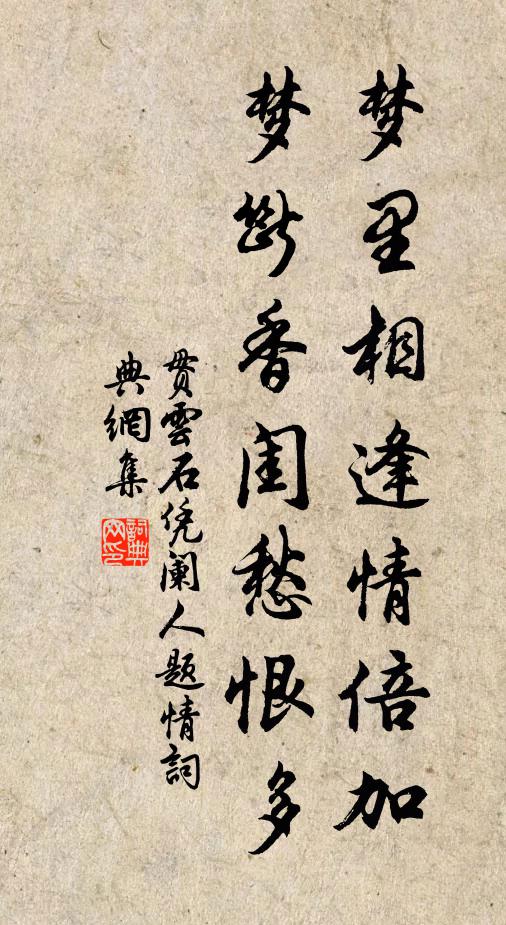 梦里相逢情倍加
梦断香闺愁恨多
贯雲石凭阑人题情詞
典網集
詞典网印